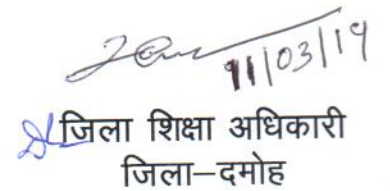 11/03/19
जिला शिक्षा अधिकारी
जिला–दमोह